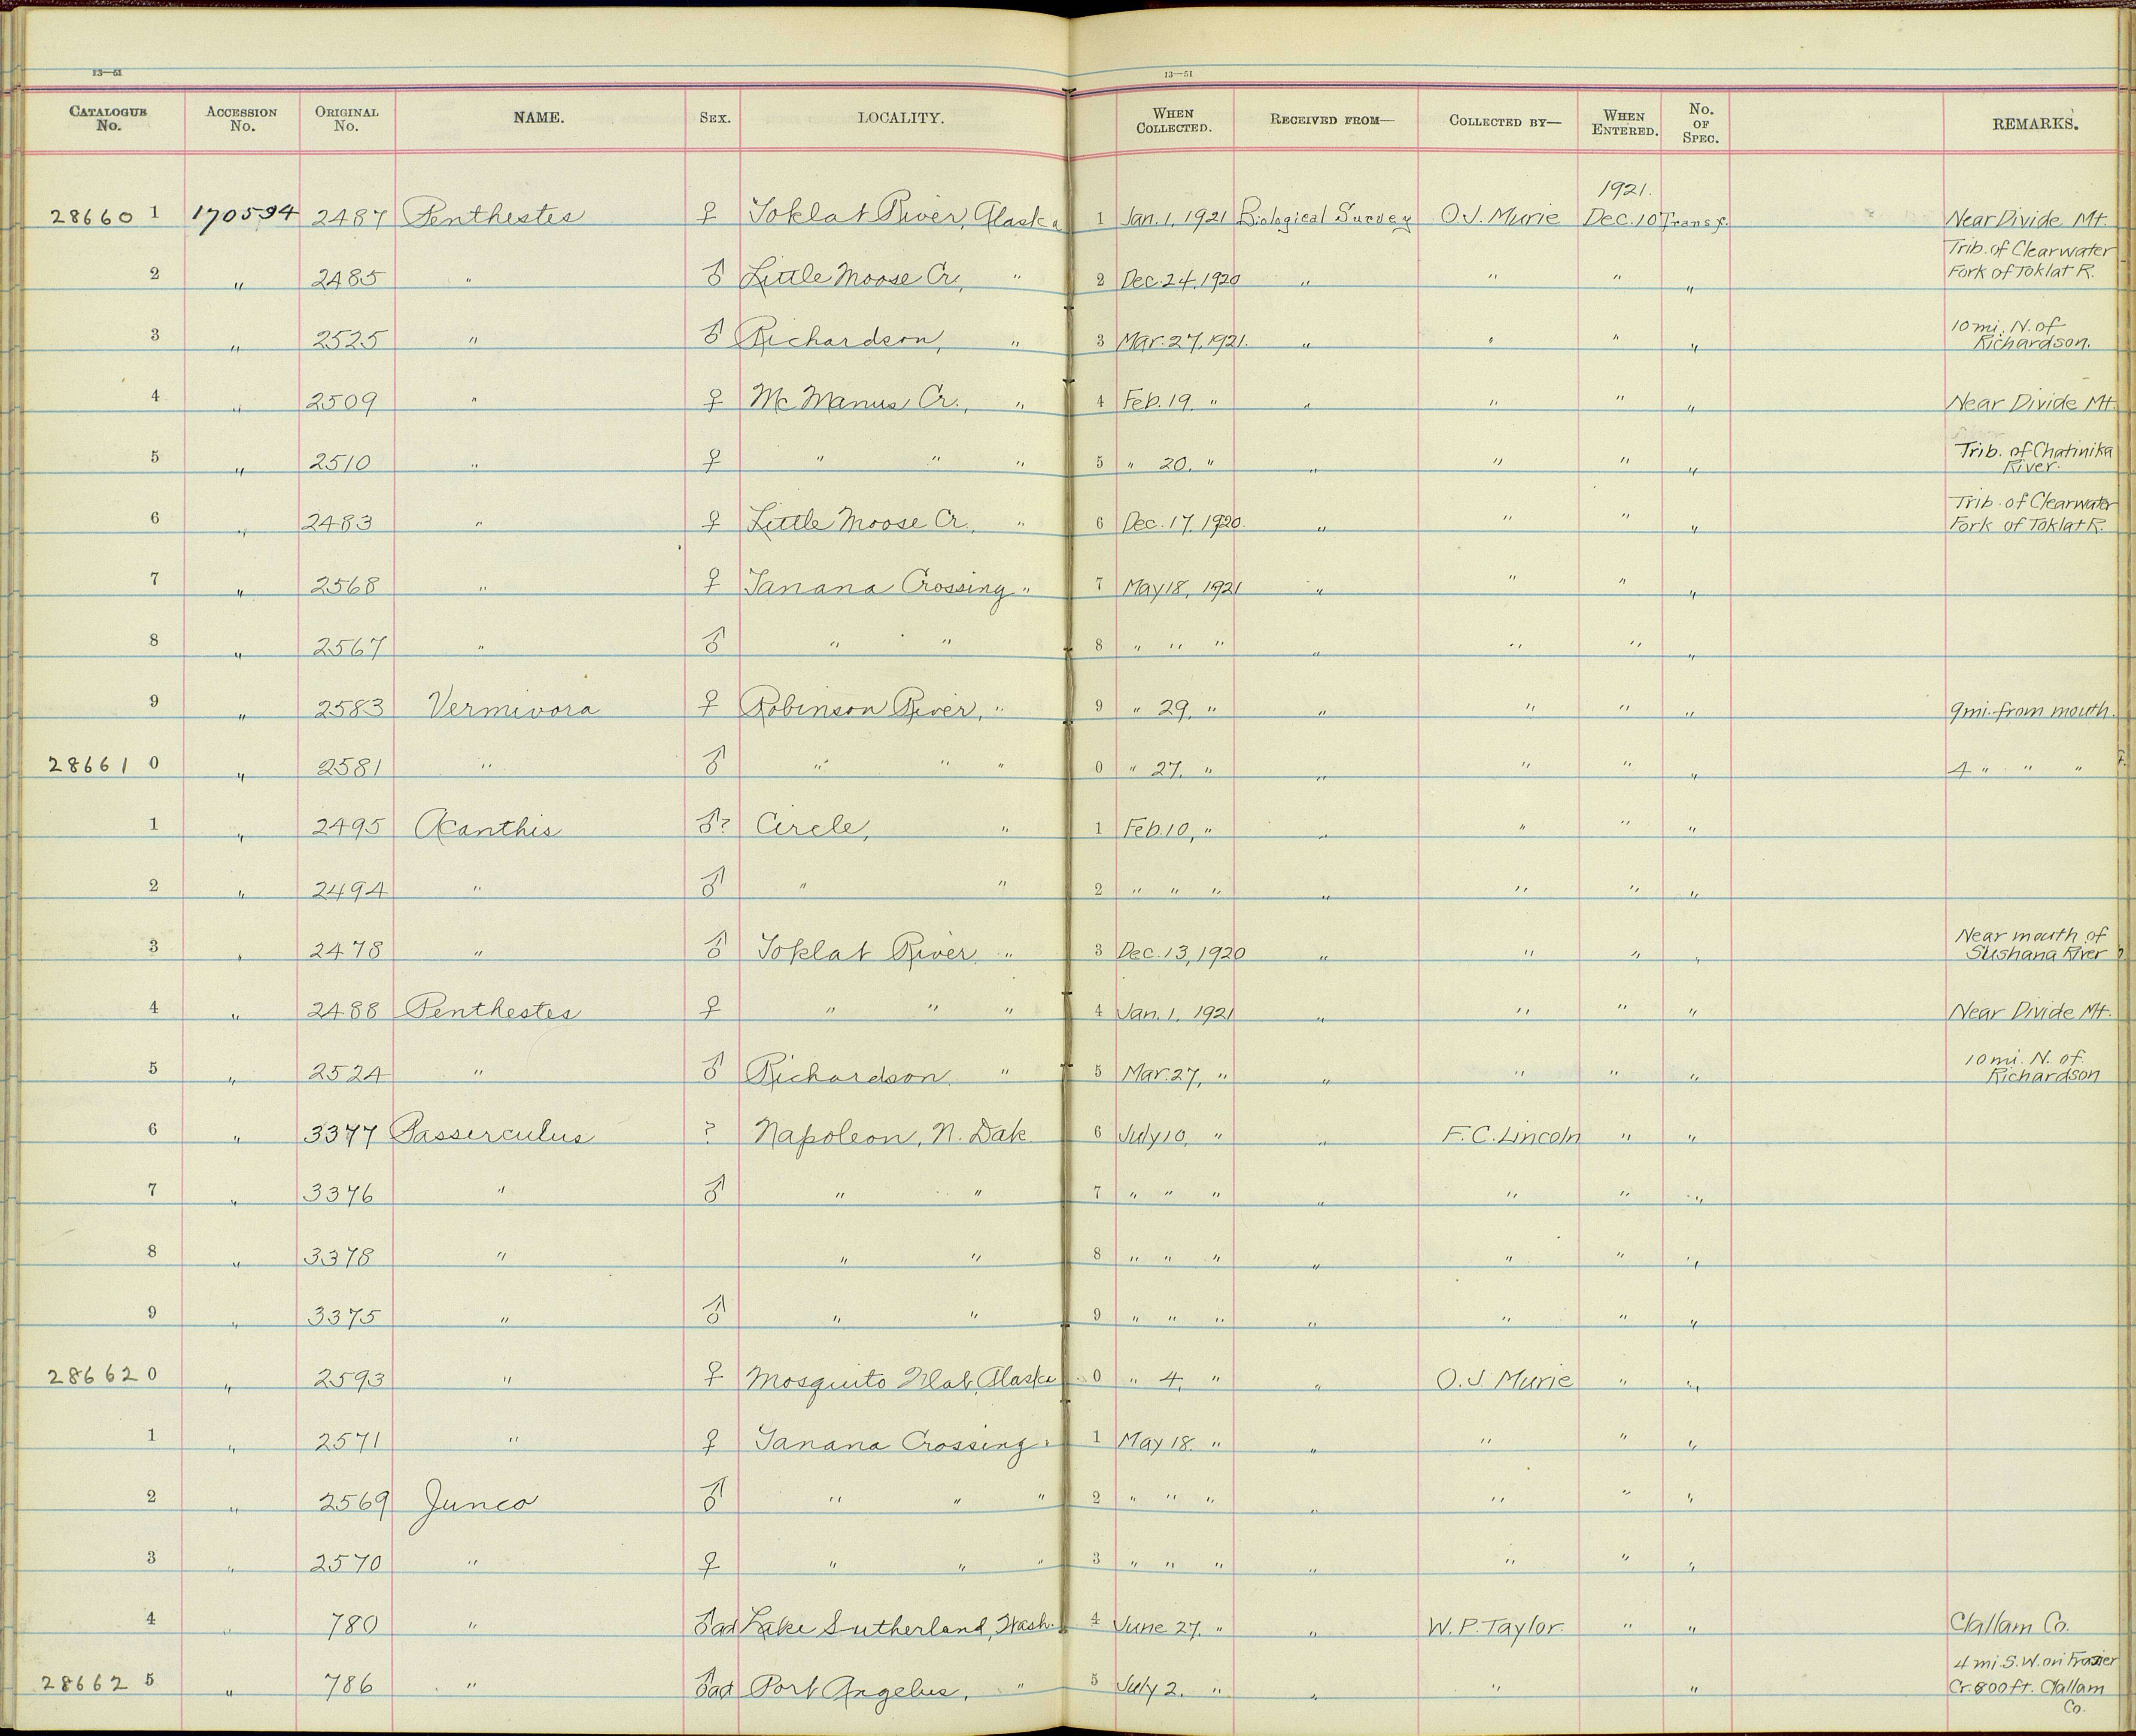 13—61 13—61
CATALOGUE No. ACCESSION No. ORIGINAL No. NAME. SEX. LOCALITY. WHEN COLLECTED. RECEIVED FROM— COLLECTED BY— WHEN ENTERED. No. OF SPEC. REMARKS.
1921.
28660 1 170594 2487 Penthestes ♀ Toklat River, Alaska 1 Jan. 1, 1921 Biological Survey O.J. Murie Dec. 10 Transf. Near Divide Mt.
Trib. of Clearwater
2 " 2485 " ♂ Little Moose Cr., " 2 Dec. 24, 1920 " " " " Fork of Toklat R.
10 mi. N. of
3 " 2525 " ♂ Richardson, " 3 Mar. 27, 1921. " " " " Richardson.
4 " 2509 " ♀ McManus Cr., " 4 Feb. 19. " " " " " Near Divide Mt.
Trib. of Chatinika
5 " 2510 " ♀ " " " 5 " 20. " " " " " River.
Trib. of Clearwater
6 " 2483 " ♀ Little Moose Cr., " 6 Dec. 17, 1920. " " " " Fork of Toklat R.
7 " 2568 " ♀ Tanana Crossing " 7 May 18, 1921 " " " "
8 " 2567 " ♂ " " 8 " " " " " " "
9 " 2583 Vermivora ♀ Robinson River, " 9 " 29, " " " " " 9 mi. from mouth.
28661 0 " 2581 " ♂ " " " 0 " 27, " " " " " 4 " " "
1 " 2495 Acanthis ♂? Circle, " 1 Feb. 10, " " " " "
2 " 2494 " ♂ " " 2 " " " " " " "
Near mouth of
3 " 2478 " ♂ Toklat River " 3 Dec. 13, 1920 " " " " Sushana River
4 " 2488 Penthestes ♀ " " " 4 Jan. 1, 1921 " " " " Near Divide Mt.
10 mi. N. of
5 " 2524 " ♂ Richardson " 5 Mar. 27, " " " " " Richardson
6 " 3377 Passerculus ? Napoleon, N. Dak 6 July 10, " " F.C. Lincoln " "
7 " 3376 " ♂ " " 7 " " " " " " "
8 " 3378 " " " 8 " " " " " " "
9 " 3375 " ♂ " " 9 " " " " " " "
28662 0 " 2593 " ♀ Mosquito Flat, Alaska 0 " 4, " " O.J. Murie " "
1 " 2571 " ♀ Tanana Crossing " 1 May 18. " " " " "
2 " 2569 Junco ♂ " " " 2 " " " " " " "
3 " 2570 " ♀ " " " 3 " " " " " " "
4 " 780 " ♂ad Lake Sutherland, Wash. 4 June 27. " " W.P. Taylor. " " Clallam Co.
4 mi. S.W. on Frazier
28662 5 " 786 " ♂ad Port Angelus, " 5 July 2. " " " " Cr. 800 ft. Clallam
Co.